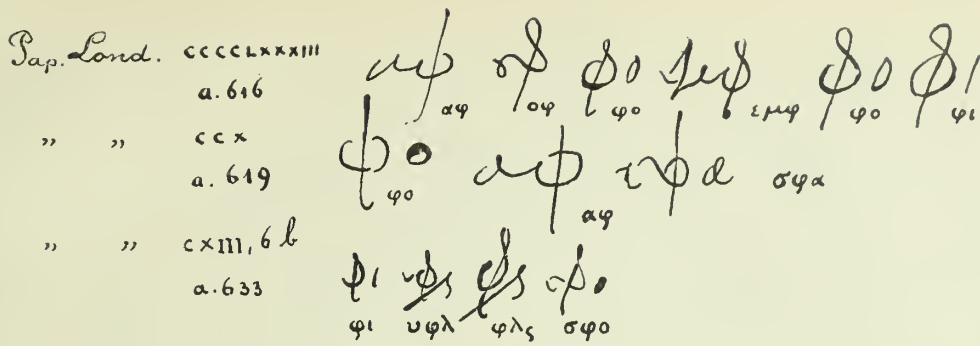 Pap. Lond. CCCCLXXXIII
a. 616
αφ οφ φο εμφ φο φι
„ „ CCX
a. 619
φο αφ σφα
„ „ CXIII, 6 b
a. 633
φι υφλ φλς σφο